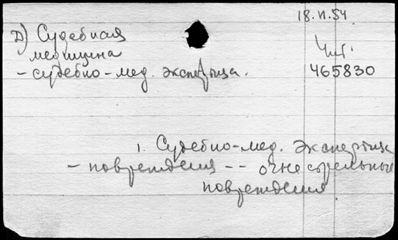 18.VI.54.
D) Судебная
медицина
Ч.З.
- судебно-мед. экспертиза.
465830
1. Судебно-мед. экспертиза
- повреждения -- огнестрельные
повреждения